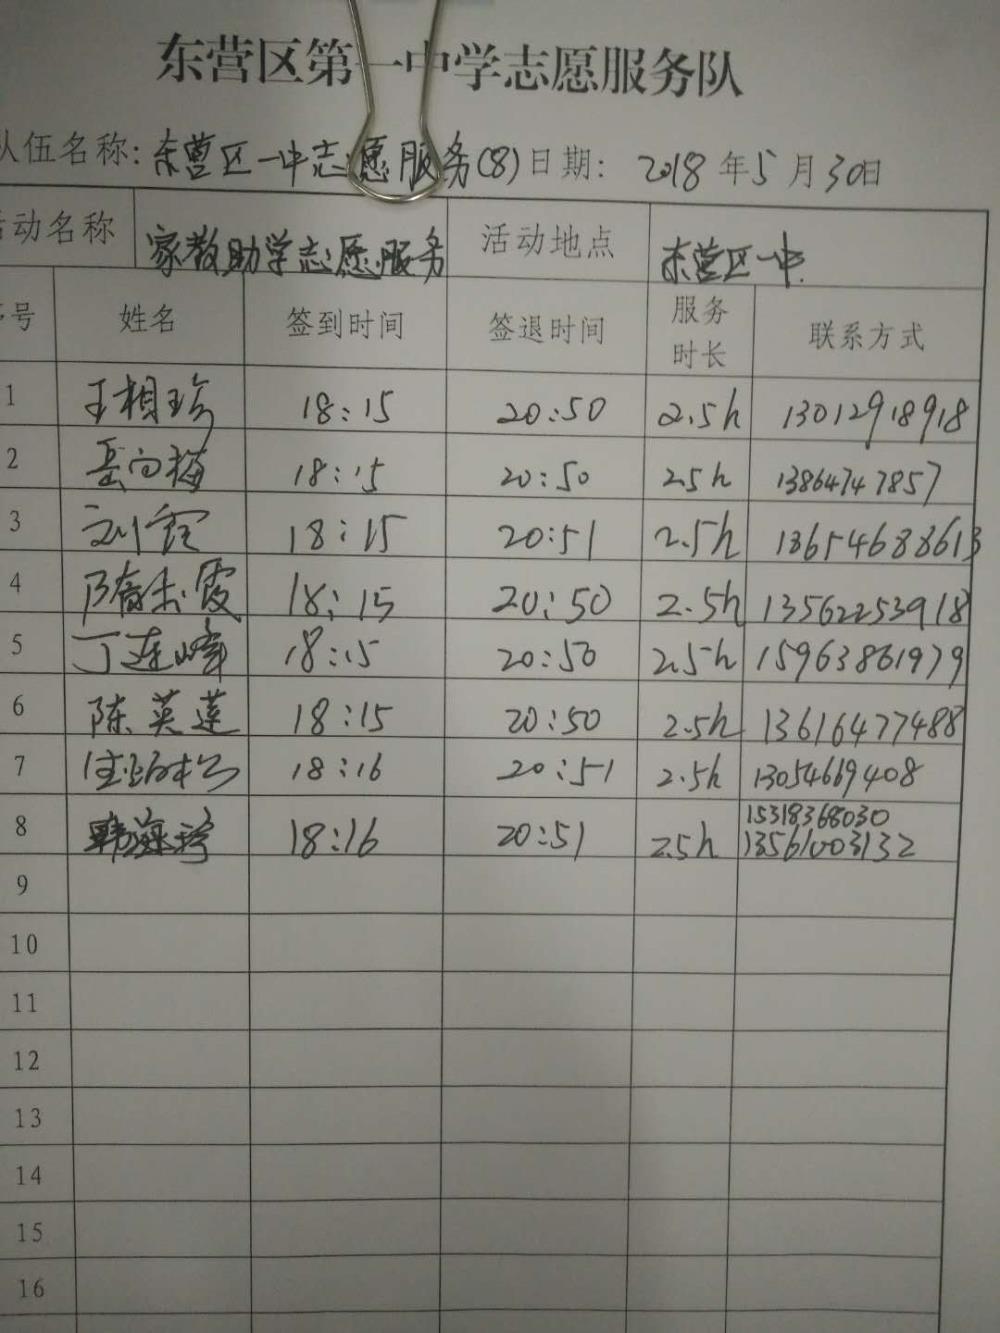 东营区第一中学志愿服务队
队伍名称: 东营区一中志愿服务(8) 日期: 2018年5月30日
活动名称 家教助学志愿服务 活动地点 东营区一中
序号 姓名 签到时间 签退时间 服务时长 联系方式
1 王相珍 18:15 20:50 2.5h 13012918918
2 岳向梅 18:15 20:50 2.5h 13864747857
3 刘霞 18:15 20:51 2.5h 18654688613
4 隋玉霞 18:15 20:50 2.5h 13562253918
5 丁连峰 18:15 20:50 2.5h 15963861979
6 陈英莲 18:15 20:50 2.5h 13616477488
7 18:16 20:51 2.5h 13054669408
8 韩海珍 18:16 20:51 2.5h 15318368030
13561003132
9
10
11
12
13
14
15
16